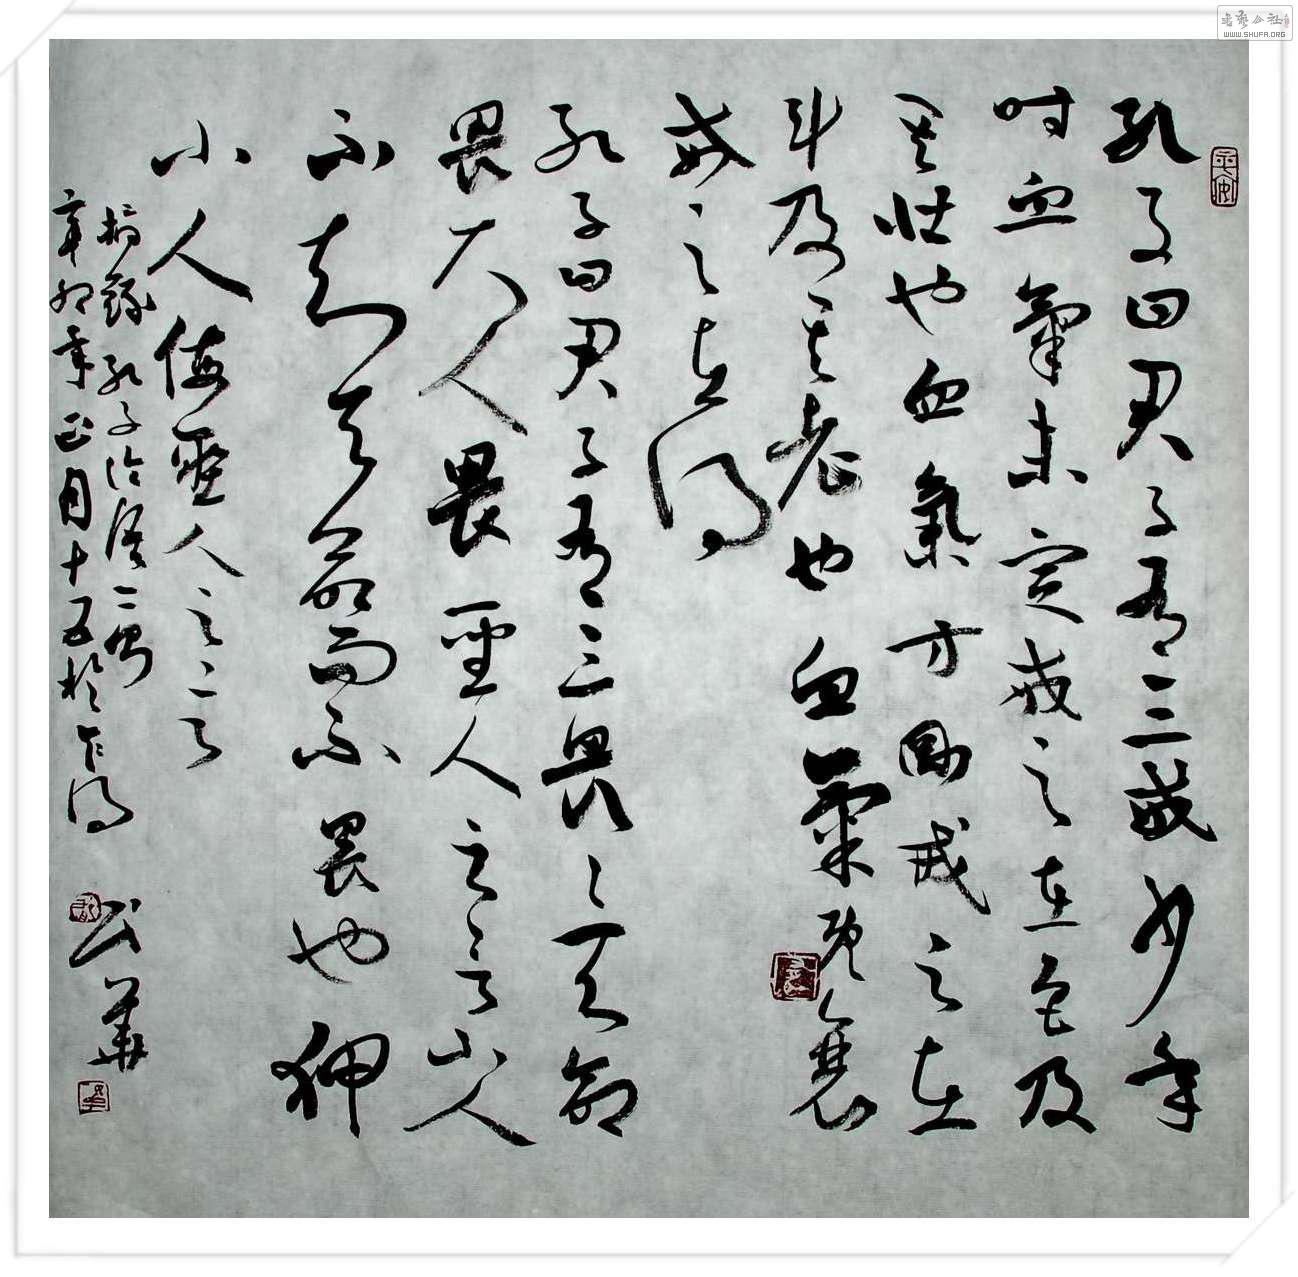 孔子曰君子有三戒少年
时血氣未定戒之在色及
其壮也血氣方剛戒之在
斗及其老也血氣既衰
戒之在得
孔子曰君子有三畏〻天命
畏大人畏聖人之言小人
不知天命而不畏也狎
小人侮聖人之言
摘錄孔子论语二
辛卯年正月十五於
華
書藝公社
WWW.SHUFA.ORG